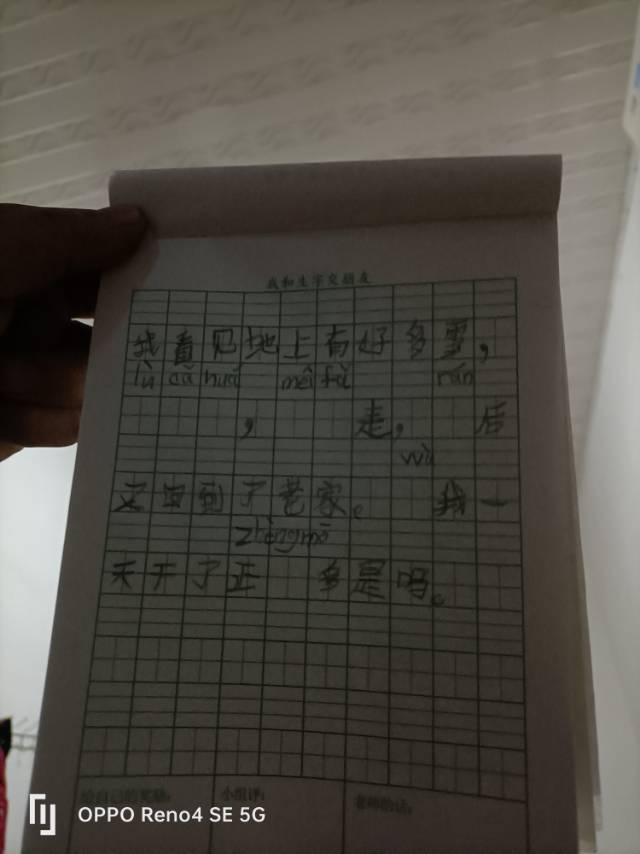 我和生字交朋友
我看见地上有好多雪，
lù cǎ huá méi fǎ rán
， 走， 后
wù
又回到了老家。 我一
zhèng mō
天开了正 多是吗。
给自己的奖励： 小组评： 老师的话：
OPPO Reno4 SE 5G